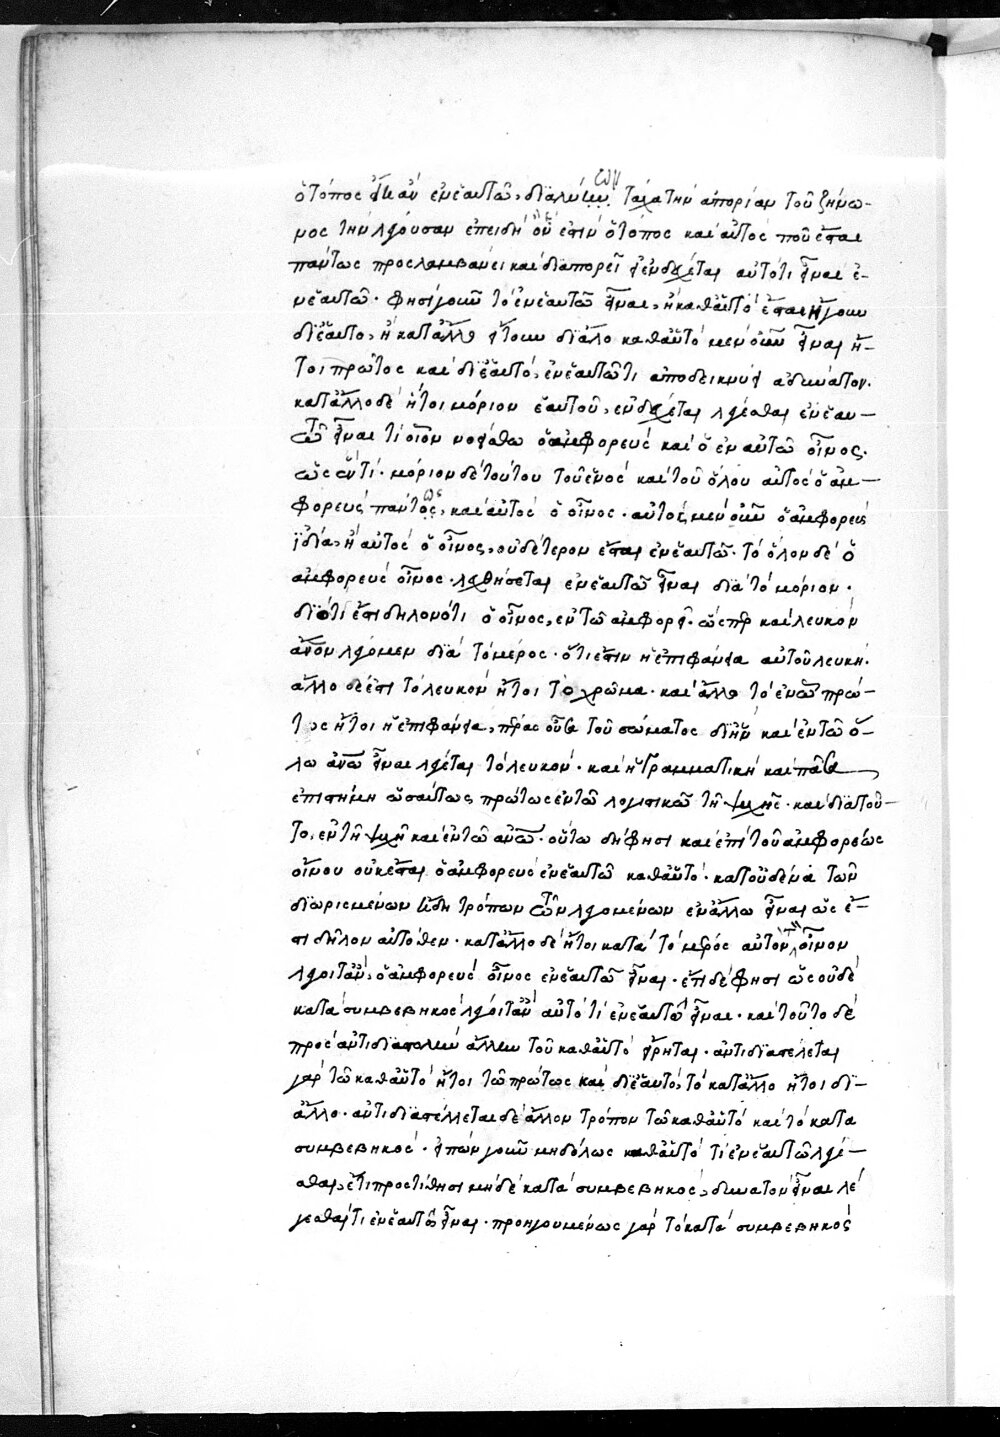 ὁ τόπος εἴη ἂν ἐν ἑαυτῶ, διαλύων ταῖχα τὴν ἀπορίαν τοῦ ζήνω-
νος τὴν λέγουσαν ἐπειδὴ ὄν ἐστιν ὁ τόπος καὶ αὐτὸς ποῦ ἔσται
πάντως προσλαμβάνει καὶ διαπορεῖ εἰ ἐνδέχεται αὐτό τι εἶναι ἐ-
ν ἑαυτῶ. φησὶ γοῦν τὸ ἐν ἑαυτῶ εἶναι, ἢ καθ' αὑτὸ ἔσται ἤγουν
δι' ἑαυτό, ἢ κατ' ἄλλο ἤτουν δι' ἄλλο καθ' αὑτὸ μὲν οὖν εἶναι ἤ-
τοι πρώτως καὶ δι' ἑαυτό, ἐν ἑαυτῶ τι ἀποδείκνυσι ἀδύνατον.
κατ' ἄλλο δὲ ἤτοι μόριον ἑαυτοῦ, ἐνδέχεται λέγεσθαι ἐν ἑαυ-
τῶ εἶναί τι οἷον νοείσθω ὁ ἀμφορεὺς καὶ ὁ ἐν αὐτῶ οἶνος.
ὡς ἕν τι. μόριον δὲ τούτου τοῦ ἑνὸς καὶ τοῦ ὅλου αὐτὸς ὁ ἀμ-
φορεὺς παντὸς, καὶ αὐτὸς ὁ οἶνος. αὐτὸς μὲν οὖν ὁ ἀμφορεὺς
ἰδία, ἢ αὐτὸς ὁ οἶνος, οὐδέτερον ἔσται ἐν ἑαυτῶ. τὸ ὅλον δὲ ὁ
ἀμφορεὺς οἶνος. λεχθήσεται ἐν ἑαυτῶ εἶναι διὰ τὸ μόριον.
διότι ἐστὶ δηλονότι ὁ οἶνος, ἐν τῶ ἀμφορεῖ. ὥσπερ καὶ λευκὸν
ἄνον λέγομεν διὰ τὸ μέρος. ὅτι ἐστὶν ἡ ἐπιφάνεια αὐτοῦ λευκή.
ἄλλο δέ ἐστι τὸ λευκὸν ἤτοι τὸ χρῶμα. καὶ ἄλλο τὸ ἐν ὧ πρώ-
τως ἤτοι ἡ ἐπιφάνεια, πέρας οὖσα τοῦ σώματος δι' ἣν καὶ ἐν τῶ ὅ-
λω ἀνω εἶναι λέγεται τὸ λευκόν. καὶ ἡ γραμματικὴ καὶ πᾶσα
ἐπιστήμη ὡσαύτως πρώτως ἐν τῶ λογιστικῶ τῆς ψυχῆς. καὶ διὰ τοῦ-
το, ἐν τῆ ψυχῆ καὶ ἐν τῶ ἀνω. οὕτω δή φησι καὶ ἐπὶ τοῦ ἀμφορέως
οἴνου οὐκ ἔσται ὁ ἀμφορεὺς ἐν ἑαυτῶ καθ' αὑτό. κατ' οὐδένα τῶν
διωρισμένων ἤδη τρόπων τῶν λεγομένων ἐν ἄλλω εἶναι ὡς ἔ-
στι δῆλον αὐτόθεν. κατ' ἄλλο δὲ ἤτοι κατὰ τὸ μέρος αὐτοῦ τὸν οἶνον
λέγοιτ' ἂν, ὁ ἀμφορεὺς οἶνος ἐν ἑαυτῶ εἶναι. ἔτι δέ φησι ὡς οὐδὲ
κατὰ συμβεβηκὸς λέγοιτ' ἂν αὐτό τι ἐν ἑαυτῶ εἶναι. καὶ τοῦτο δὲ
πρὸς ἀντιδιαστολὴν ἄλλην τοῦ καθ' αὑτὸ εἴρηται. ἀντιδιαστέλεται
γὰρ τῶ καθ' αὑτὸ ἤτοι τῶ πρώτως καὶ δι' ἑαυτό, τὸ κατ' ἄλλο ἤτοι δι'
ἄλλο. ἀντιδιαστέλλεται δὲ ἄλλον τρόπον τῶ καθ' αὑτὸ καὶ τὸ κατὰ
συμβεβηκός. εἰπὼν γοῦν μηδόλως καθ' αὑτό τι ἐν ἑαυτῶ λέγε-
σθαι, ἔτι προστίθησι μηδὲ κατὰ συμβεβηκός, δυνατὸν εἶναι λέ
γεσθαί τι ἐν ἑαυτῶ εἶναι. προηγουμένως γὰρ τὸ κατὰ συμβεβηκὸς